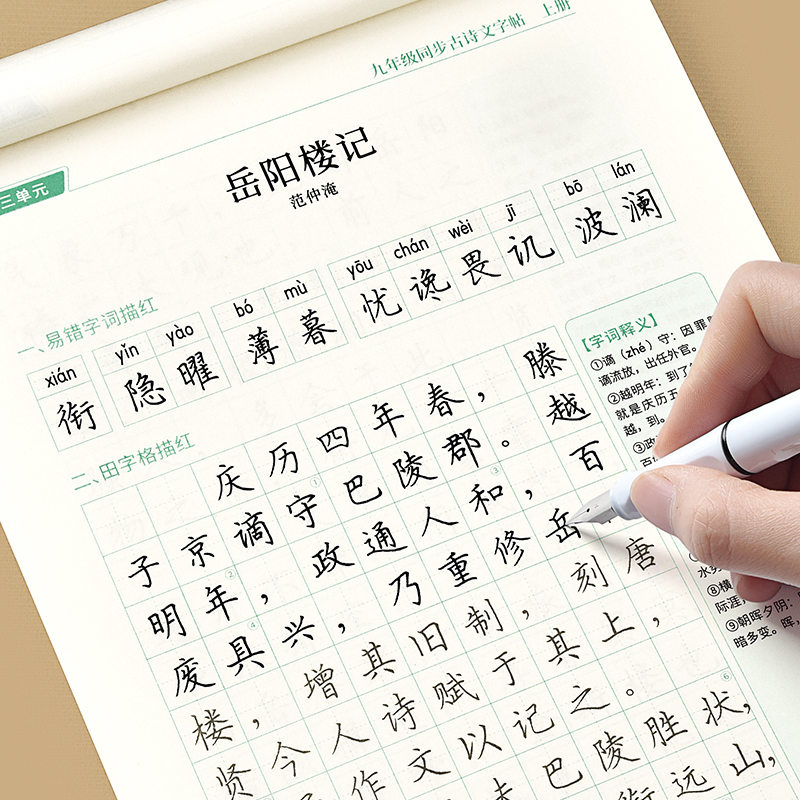 九年级同步古诗文字帖 上册
三单元
岳阳楼记
范仲淹
一、易错字词描红
xián yǐn yào bó mù yōu chán wèi jī bō lán
衔 隐曜 薄暮 忧谗畏讥 波澜
二、田字格描红
庆历四年春，滕
子京谪①守巴陵郡。越
明年②，政通人和③，百
废具④兴，乃重修岳
楼，增其旧制，刻唐
贤今人诗赋于其上，
作文以记之。⑥
巴陵胜状，
衔远山，
【字词释义】
①谪（zhé）守：因罪
谪流放，出任外官。
②越明年：到了
就是庆历五
越，到。
③政
百
⑧横
际涯，
⑨朝晖夕阴：
暗多变。晖，